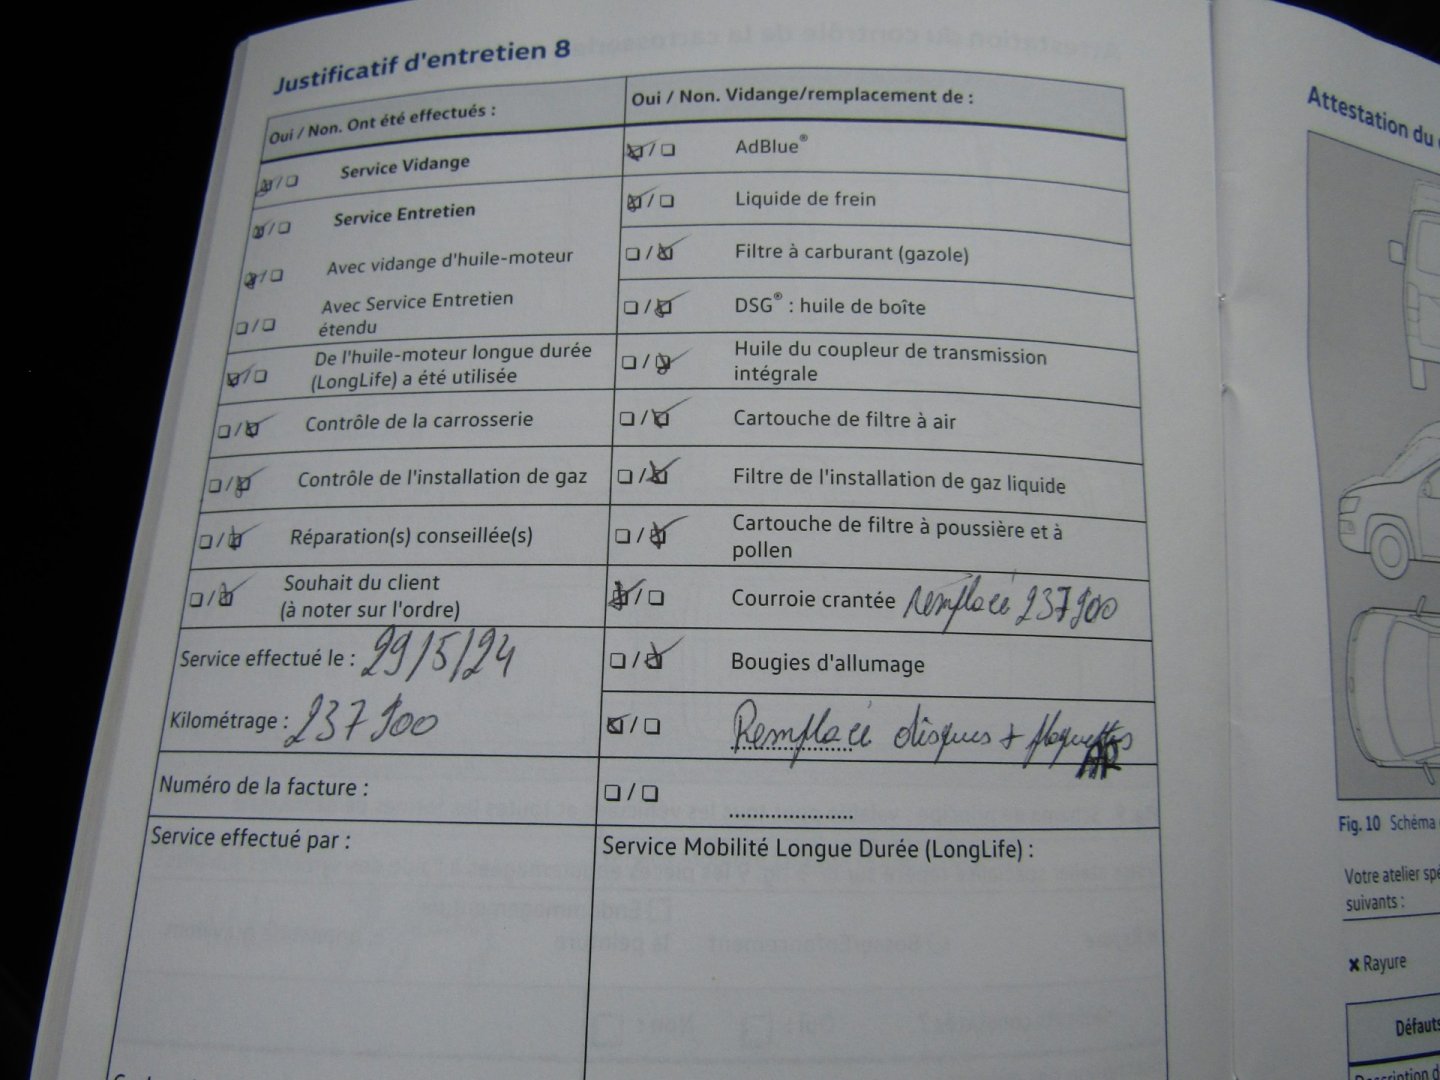 Justificatif d'entretien 8
Oui / Non. Ont été effectués :
Service Vidange
Service Entretien
Avec vidange d'huile-moteur
Avec Service Entretien
étendu
De l'huile-moteur longue durée
(LongLife) a été utilisée
Contrôle de la carrosserie
Contrôle de l'installation de gaz
Réparation(s) conseillée(s)
Souhait du client
(à noter sur l'ordre)
Service effectué le : 29/5/24
Kilométrage : 237900
Numéro de la facture :
Service effectué par :
Oui / Non. Vidange/remplacement de :
AdBlue®
Liquide de frein
Filtre à carburant (gazole)
DSG® : huile de boîte
Huile du coupleur de transmission
intégrale
Cartouche de filtre à air
Filtre de l'installation de gaz liquide
Cartouche de filtre à poussière et à
pollen
Courroie crantée remplacé 237900
Bougies d'allumage
Remplacé disques + plaquettes
AR
Service Mobilité Longue Durée (LongLife) :
Attestation du
Fig. 10 Schéma
Votre atelier spé
suivants :
✖ Rayure
Défauts
Description d